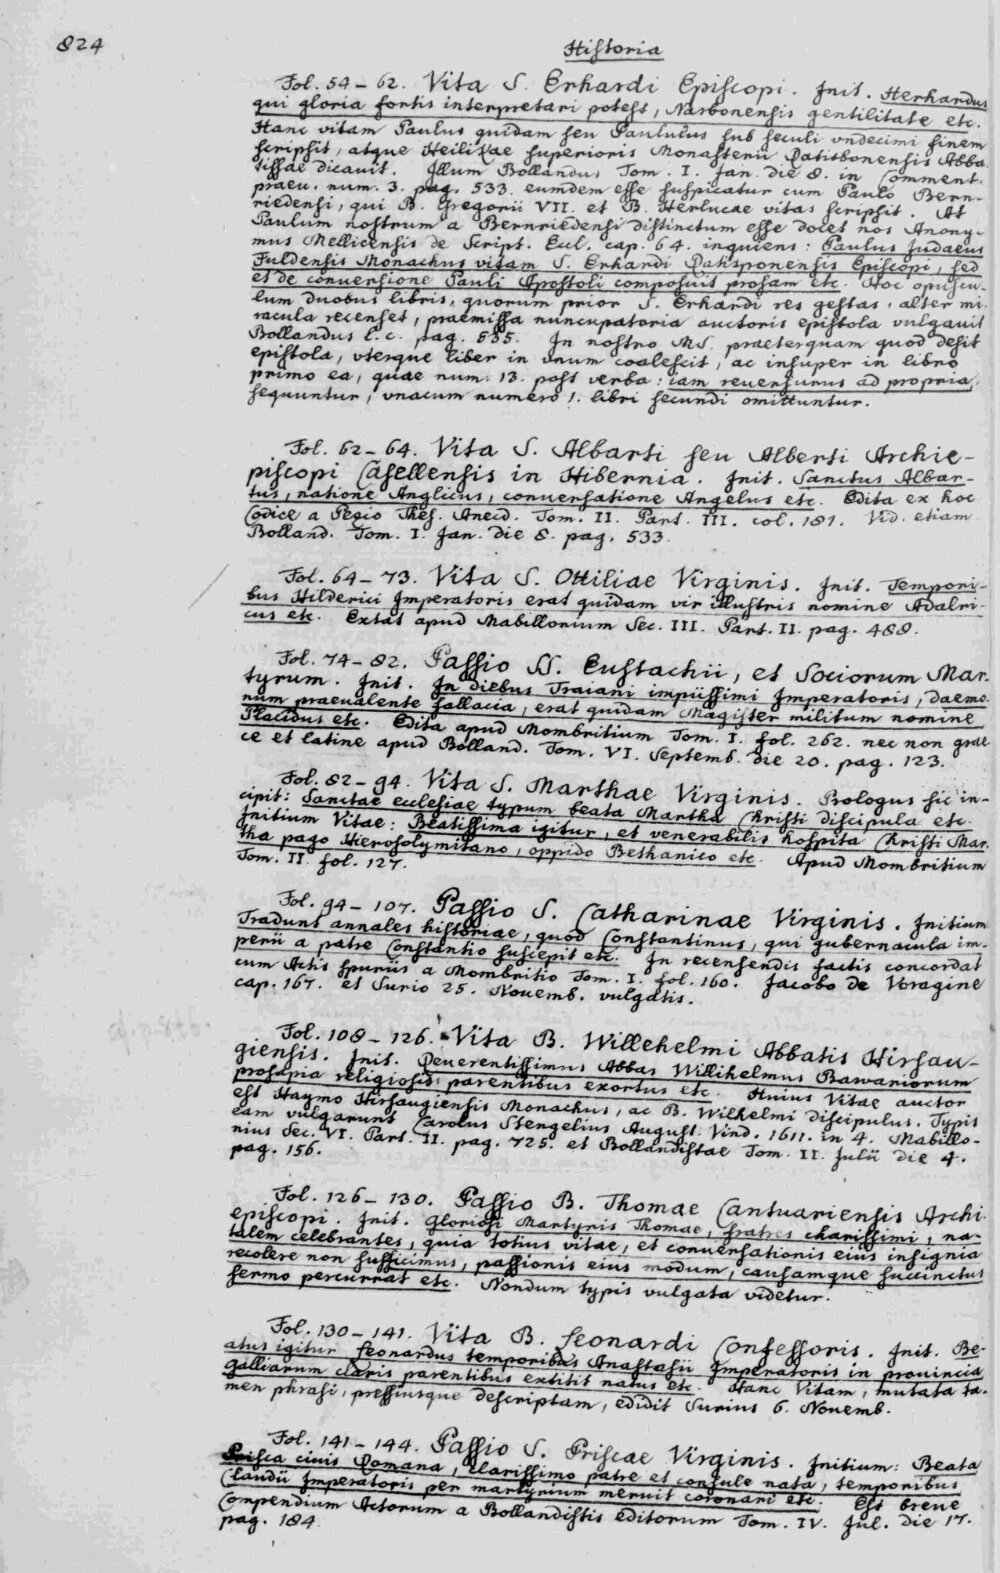 824
Historia
Fol. 54 – 62. Vita S. Erhardi Episcopi. Init. Herhardus
qui gloria fortis interpretari potest, Narbonensis gentilitate etc.
Hanc vitam Paulus quidam seu Paululus sub seculi vndecimi finem
scripsit, atque Heilikae superioris Monasterii Ratisbonensis Abba
tissae dicauit. Illum Bollandus Tom. I. Jan. die 8. in Comment.
praeu. num. 3. pag. 533. eumdem esse suspicatur cum Paulo Bern-
riedensi, qui B. Gregorii VII. et B. Herlucae vitas scripsit. At
Paulum nostrum a Bernriedensi distinctum esse docet nos Anony-
mus Mellicensis de Script. Eccl. cap. 64. inquiens: Paulus Judaeus
Fuldensis Monachus vitam S. Erhardi Ratisponensis Episcopi, sed
et de conuersione Pauli Apostoli composuit prosam etc. Hoc opuscu-
lum duobus libris, quorum prior S. Erhardi res gestas, alter mi
racula recenset, praemissa nuncupatoria auctoris epistola vulgauit
Bollandus l. c. pag. 535. In nostro MS. praeterquam quod desit
epistola, vterque liber in vnum coalescit, ac insuper in libro
primo ea, quae num. 13. post verba: iam reuersurus ad propria,
sequuntur, vnacum numero 1. libri secundi omittuntur.
Fol. 62 – 64. Vita S. Albarti seu Alberti Archie-
piscopi Casellensis in Hibernia. Init. Sanctus Albar-
tus, natione Anglicus, conuersatione Angelus etc. Edita ex hoc
Codice a Pezio Thes. Anecd. Tom. II. Part. III. col. 181. Vid. etiam
Bolland. Tom. I. Jan. die 8. pag. 533.
Fol. 64 – 73. Vita S. Ottiliae Virginis. Init. Tempori-
bus Hilderici Imperatoris erat quidam vir illustris nomine Adalri-
cus etc. Extat apud Mabillonium Sec. III. Part. II. pag. 488.
Fol. 74 – 82. Passio SS. Eustachii, et Sociorum Mar.
tyrum. Init. In diebus Traiani impiissimi Imperatoris, daemo.
num praeualente fallacia, erat quidam Magister militum nomine
Placidus etc. Edita apud Mombritium Tom. I. fol. 262. nec non grae
ce et latine apud Bolland. Tom. VI. Septemb. die 20. pag. 123.
Fol. 82 – 94. Vita S. Marthae Virginis. Prologus sic in-
cipit: Sanctae ecclesiae typum beata Martha Christi discipula etc.
Initium Vitae: Beatissima igitur, et venerabilis hospita Christi Mar.
tha pago Hierosolymitano, oppido Bethanico etc. Apud Mombritium
Tom. II. fol. 127.
Fol. 94 – 107. Passio S. Catharinae Virginis. Initium
Tradunt annales historiae, quod Constantinus, qui gubernacula im-
perii a patre Constantio suscepit etc. In recensendis factis concordat
cum Actis spuriis a Mombritio Tom. I. fol. 160. Jacobo de Voragine
cap. 167. et Surio 25. Nouemb. vulgatis.
Fol. 108 – 126. Vita B. Willehelmi Abbatis Hirsau-
giensis. Init. Reuerentissimus Abbas Willihelmus Bawariorum
prosapia religiosis parentibus exortus etc. Huius Vitae auctor
est Haymo Hirsaugiensis Monachus, ac B. Wilhelmi discipulus. Typis
eam vulgarunt Carolus Stengelius August. Vind. 1611. in 4. Mabillo-
nius Sec. VI. Part. II. pag. 725. et Bollandistae Tom. II. Julii die 4.
pag. 156.
Fol. 126 – 130. Passio B. Thomae Cantuariensis Archi
episcopi. Init. Gloriosi Martyris Thomae, fratres charissimi, na-
talem celebrantes, quia totius vitae, et conuersationis eius insignia
recolere non sufficimus, passionis eius modum, causamque succinctus
sermo percurrat etc. Nondum typis vulgata videtur.
Fol. 130 – 141. Vita B. Leonardi Confessoris. Init. Be-
atus igitur Leonardus temporibus Anastasii Imperatoris in prouincia
Galliarum claris parentibus extitit natus etc. Hanc Vitam, mutata ta-
men phrasi, pressiusque descriptam, edidit Surius 6. Nouemb.
Fol. 141 – 144. Passio S. Priscae Virginis. Initium: Beata
Prisca ciuis Romana, clarissimo patre et consule nata, temporibus
Claudii Imperatoris per martyrium meruit coronari etc. Est breue
Compendium Actorum a Bollandistis editorum Tom. IV. Jul. die 17.
pag. 184.